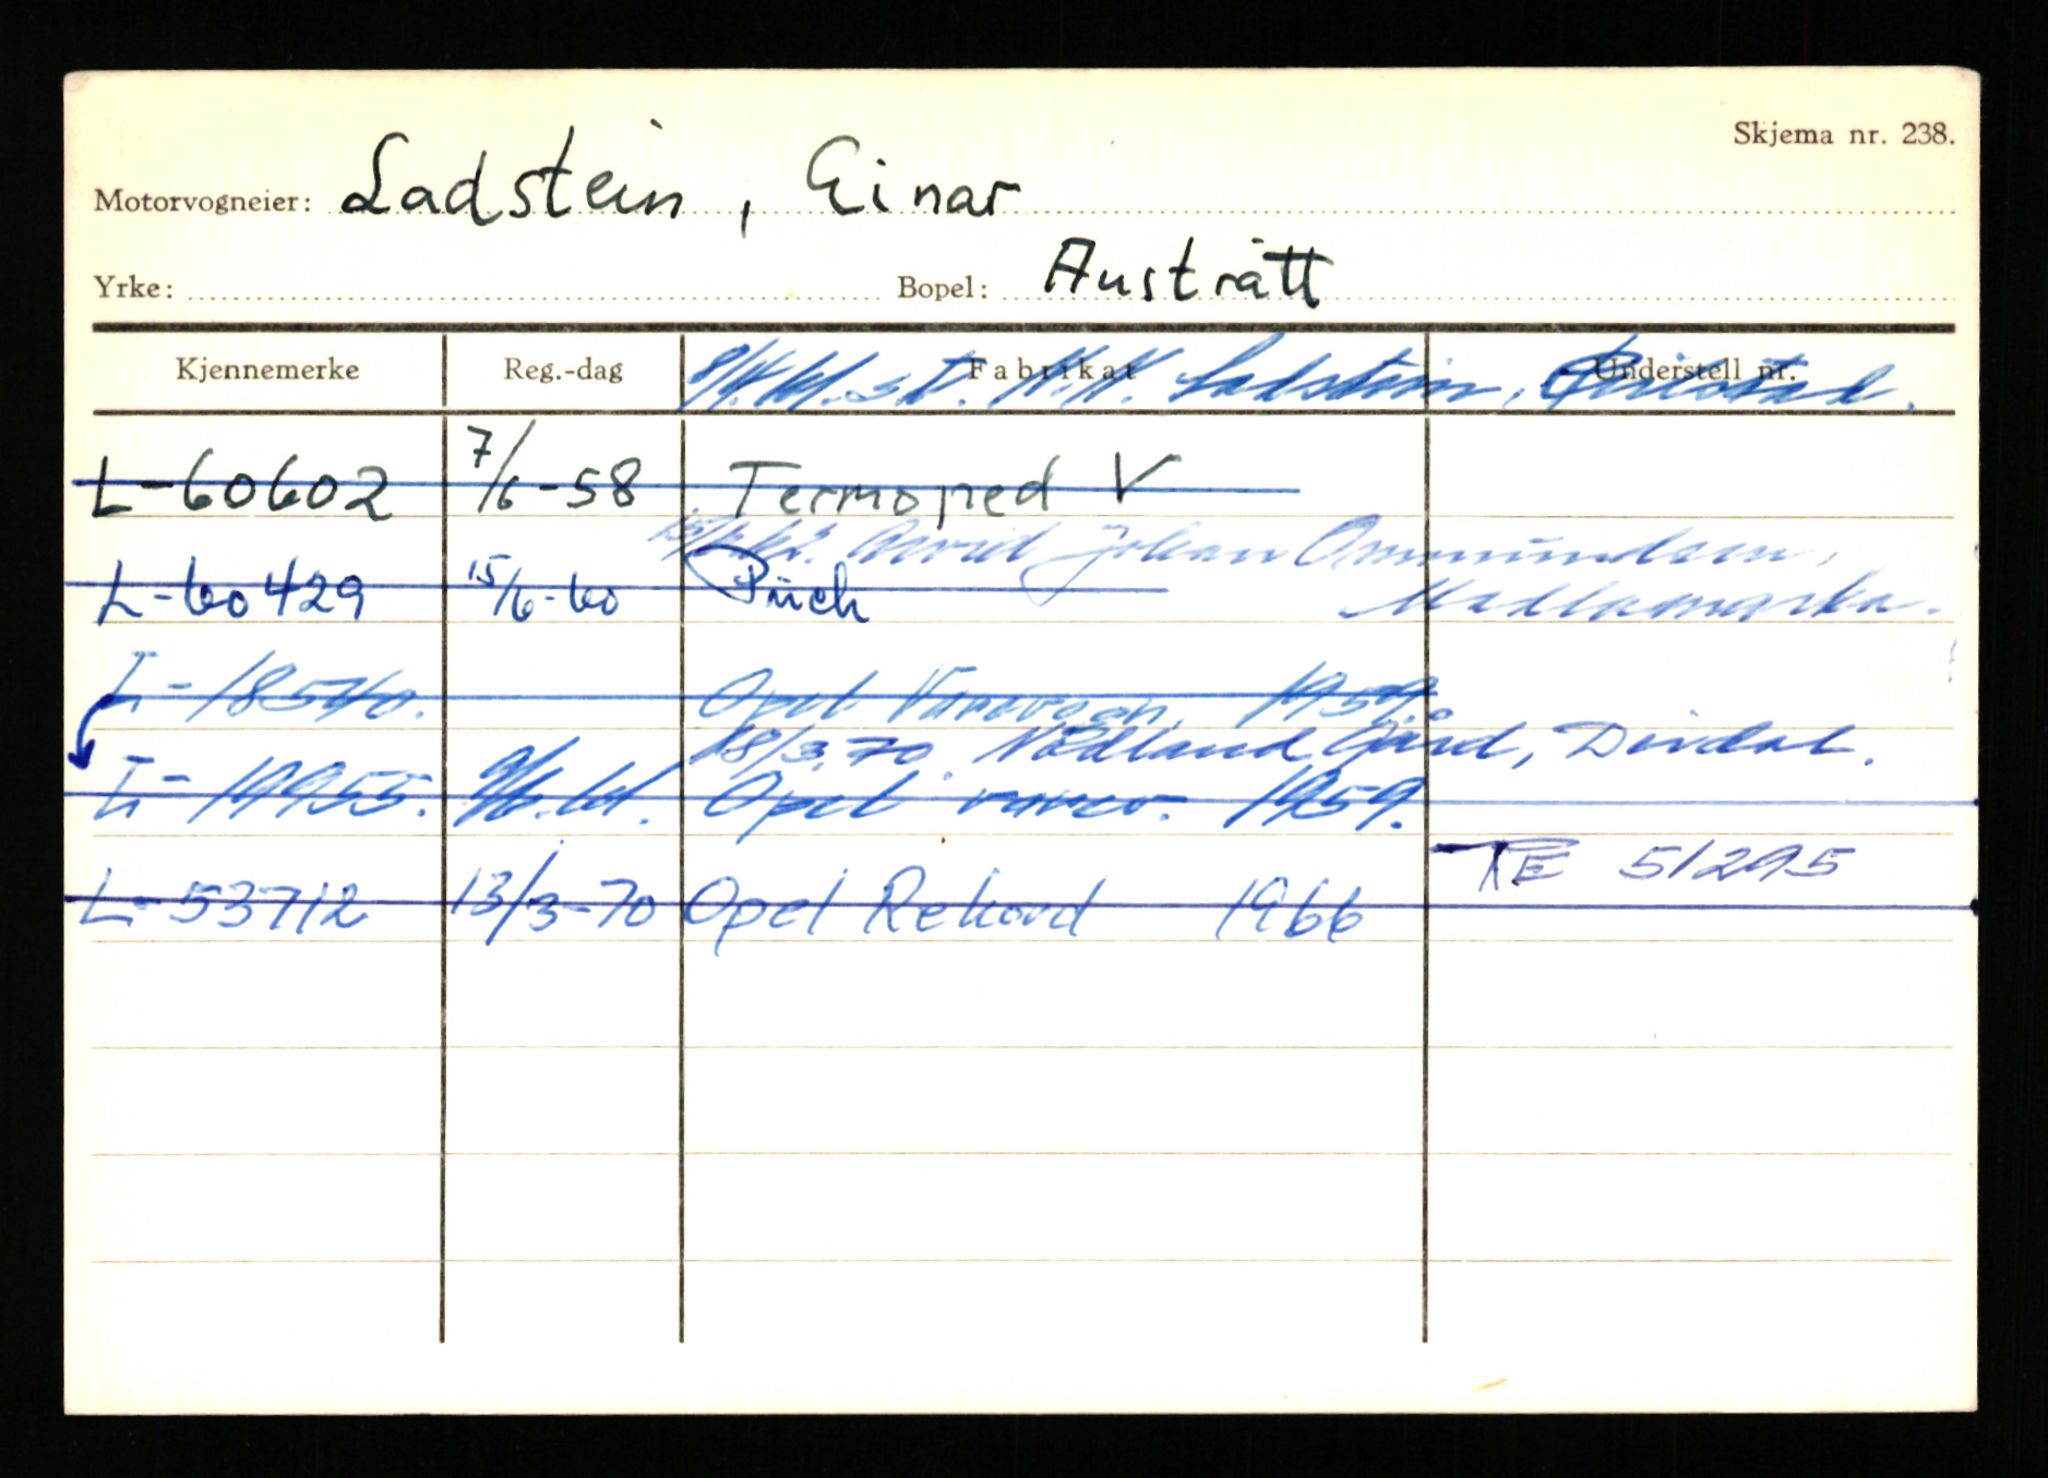 Skjema nr. 238.
Motorvogneier: Ladstein, Einar
Yrke: Bopel: Austrått
Kjennemerke Reg.-dag Fabrikat Understell nr.
st. Ladstein,
L-60602 7/6-58 Termoped V
Johan Ommundsen,
L-60429 15/6-60 Puch
Madlamarka.
L-18540. Opel Varevogn, 1959.
18/3.70. Nådland Gård, Dirdal.
L-19955. 9/6.61. Opel varev. 1959.
TE 51295
L-53712 13/3-70 Opel Rekord 1966